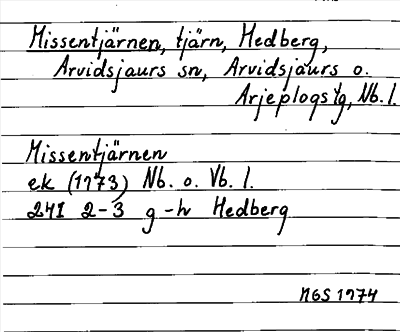 Missentjärnen, tjärn, Hedberg,
Arvidsjaurs sn, Arvidsjaurs o.
Arjeplogs tg, Nb. l.
Missentjärnen
ek (1973) Nb. o. Vb. l.
24I 2-3 g-h Hedberg
MGS 1974